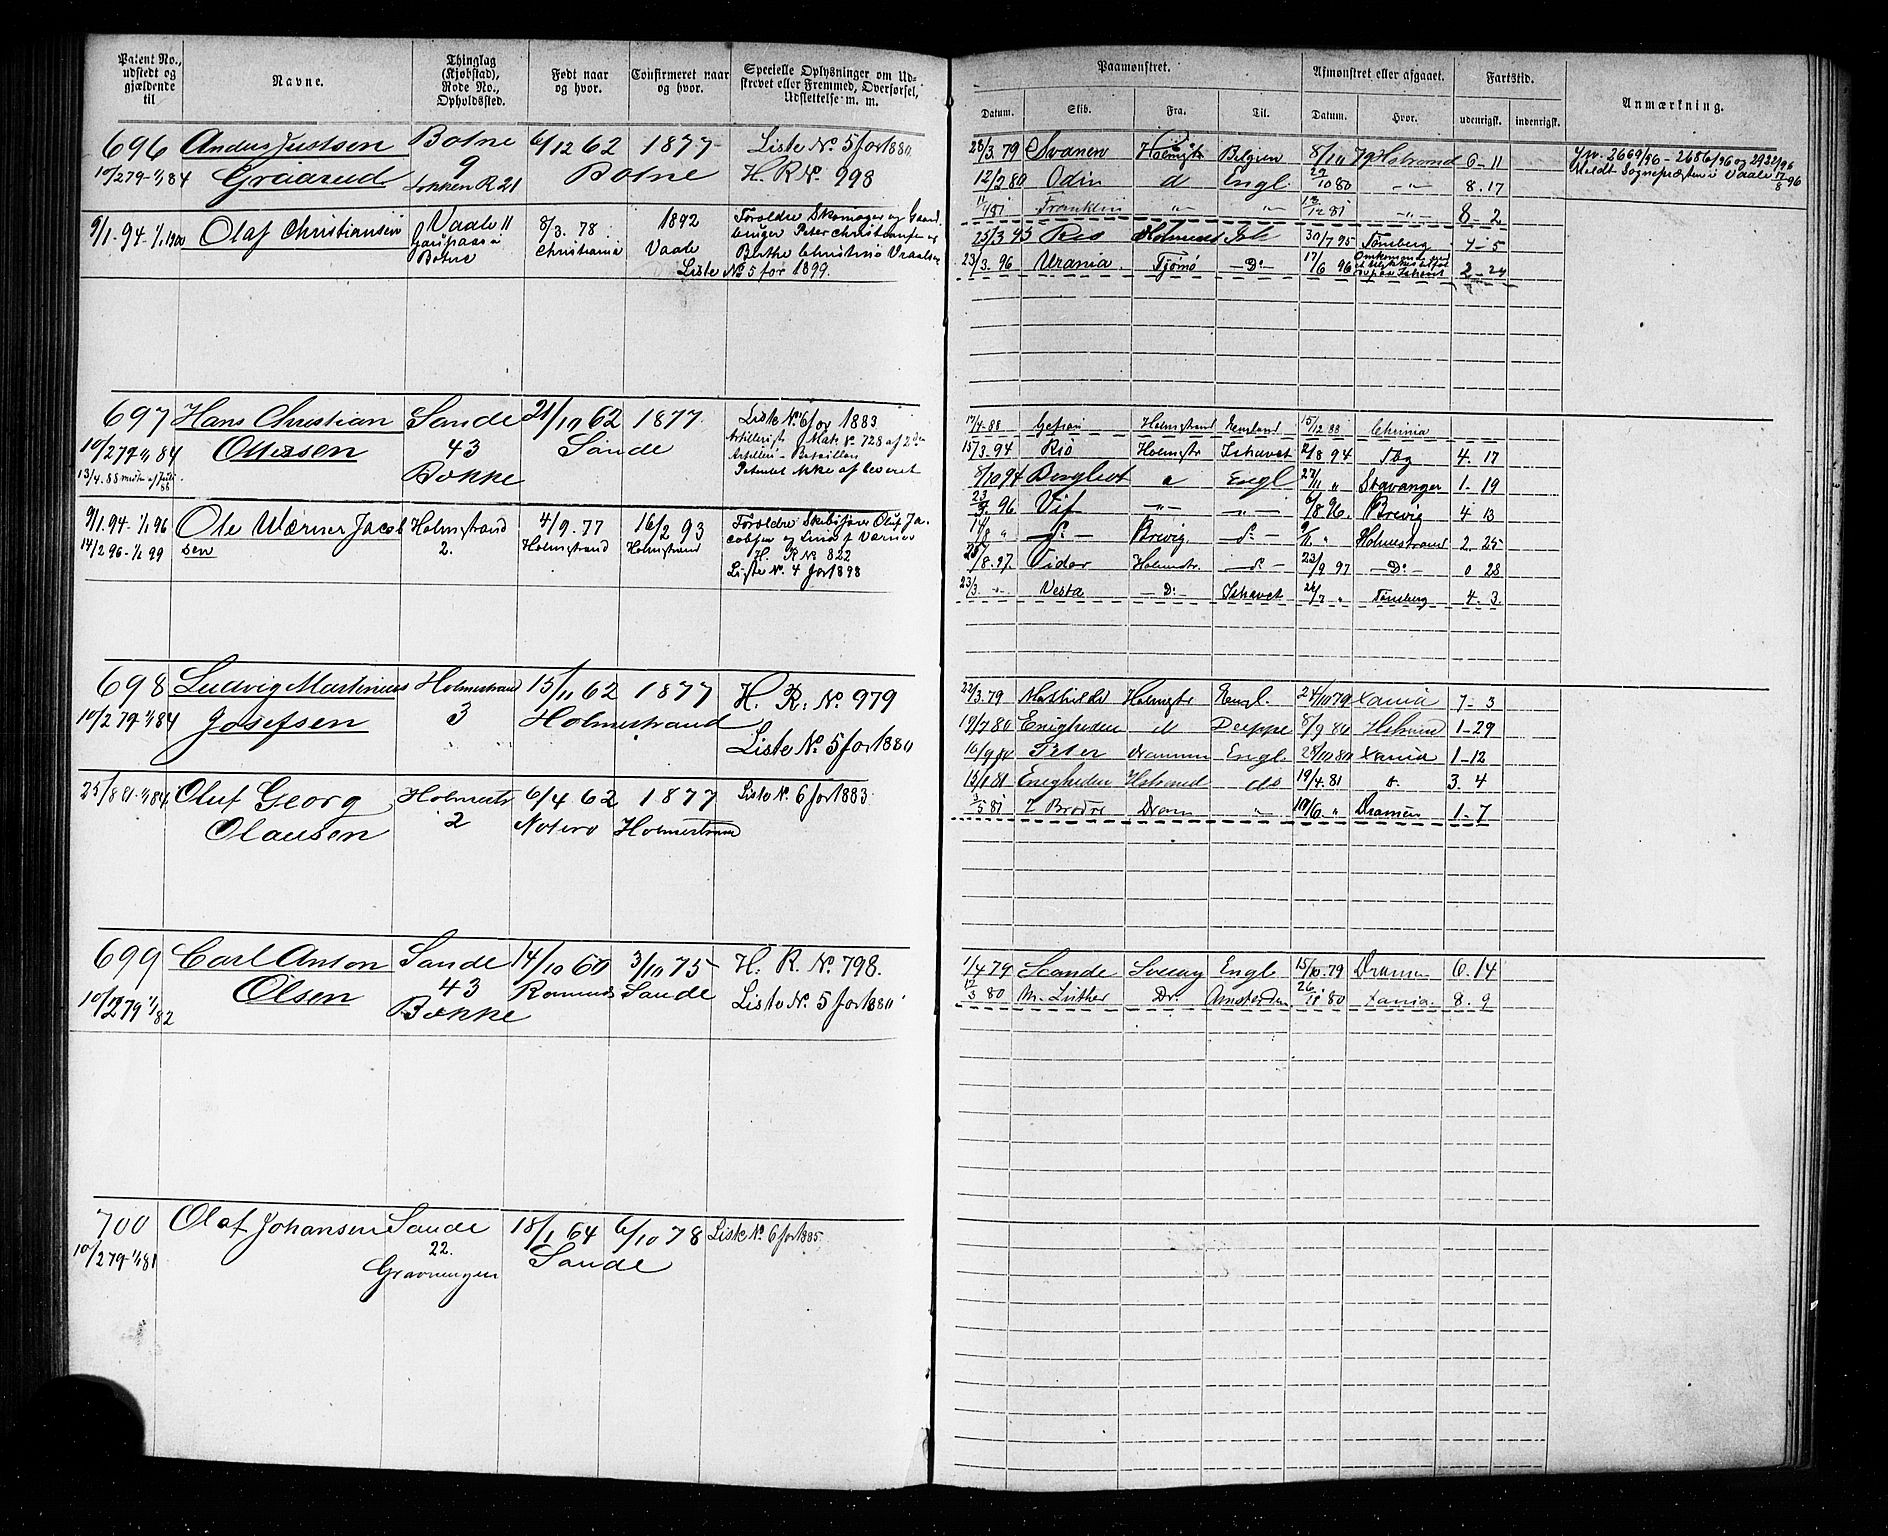 Patent No., udstedt og gjældende til
Navne.
Thinglag (Kjøbstad), Rode No., Opholdssted.
Født naar og hvor.
Confirmeret naar og hvor.
Specielle Oplysninger om Udskrevet eller Fremmed, Overførsel, Udslettelse m. m.
Paamønstret.
Afmønstret eller afgaaet.
Fartstid.
Anmærkning.
Datum. Skib. Fra. Til. Datum. Hvor. udenrigsk. indenrigsk.
696 Anders Justsen Botne 6/12 62 1877 Liste No. 5 for 1880
10/2 79 - 1/1 84 Graarud 9 Botne H. R. No. 998
Løkken R 21
9/1. 94 - 1/1 1900 Olaf Christiansen Vaale 11 8/3. 78. 1892 Forældre Skomager og Gaard
Christiania Vaale bruger Peter Christiansen og
Botne Berthe Christine
Liste No 5 for 1899.
28/3. 79 Svanen Holmstr Belgien 8/10 79 Holstrand 6 - 11
12/3 80 Odin d Engl. 29/10 80 - " - 8. 17
11/4 81 Franklin - " - - " - 13/12 81 - " - 8 - 2
25/3 95 Rio Holmestr Ish 30/7 95 Tønsberg 4 - 5
23/3. 96 Urania Tjømø - Do - 17/6 96 2 - 24
J.nr. 2669/96 - 2686/96 og 2922/96
Meldt Sognepræsten i Vaale 17/8 96
697 Hans Christian Sande 21/10 62 1877. Liste No. 6 for 1883
10/2 79 1/1 84 Ottersen 43 Sande Artillerist Matr. No. 728 af 2den
13/4. 88 Bokke Artilleri-Bataillon
Patentet ikke afleveret
9/1. 94 - 1/1 96 Ole Werner Jacob Holmestrand 4/9. 77 16/2 93 Forældre Skibsfører Oluf Ja-
14/2 96 - 1/1 99 sen 2. Holmestrand Holmestrand cobsen og
H. R No 822
Liste No. 4 for 1898
17/4 88 Gefion Holmestrand England 15/12 88 Chrinia
15/3. 94 Rio Holmestr Ishavet 2/8 94 Tbg 4. 17
8/10 94 Borgliot d Engl 27/11 " Stavanger 1. 19
23/3. 96 Vif - " - - " - 6/8 96. Brevig 4 13
14/8 " - Do - Brevig. - Do - 9/11 " Holmestrand 2. 25
25/8. 97. Vidar Holmestr. - Do - 23/9 97 - Do - 0 28
23/3. - " - Vesta - Do - Ishavet 26/7 " Tønsberg 4. 3.
698 Ludvig Martinius Holmestrand 15/11 62 1877 H. R. No 979
10/2 79 - 1/1 84 Josefsen 3 Holmestrand Liste No. 5 for 1880
25/8 81 - 1/1 84 Oluf Georg Holmestr 6/4 62 1877 Liste No. 6 for 1883
Olausen 2 Notero Holmestrand
22/3. 79 Mathilde Holmestr Engl. 24/10 79 Xania 7 - 3
19/7 80 Enigheden d Dieppe 8/9 80 Holmestrand 1 - 29
16/9 80 Peter Drammen Engl. 28/10 80 Xania 1 - 12
15/1 81 Enigheden Hstrand do 19/4. 81 d. 3. 4
3/5 81 2 Brødre Dram " 10/6. " Dramen 1 - 7
699 Carl Anton Sande 14/10 60 3/10 75 H. R. No. 798.
10/2 79 1/1 82 Olsen 43 Sande Liste No. 5 for 1880
Bokke
1/4 79 Scande Engl 15/10. 79 Dramen 6. 14
12/3 80 M. Luther Dr. Amsterdam 26/11 80 Xania. 8. 9
700 Olaf Johansen Sande 18/1 64 6/10 78 Liste No. 6 for 1885
10/2 79 - 1/1 81 22. Sande
Gravningen